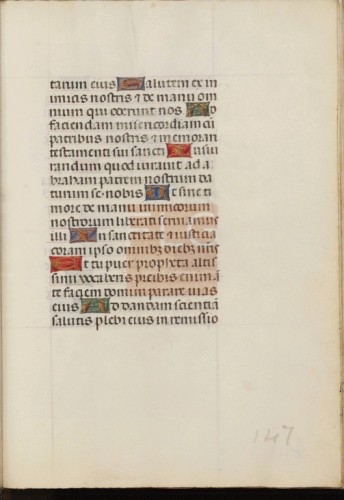 tarum eius Salutem ex in
imicis nostris & de manu om
nium qui oderunt nos Ad
faciendam misericordiam cū
patribus nostris & memorari
testamenti sui sancti Iusiu
randum quod iurauit ad a
braham patrem nostrum da
turum se nobis Ut sine ti
more de manu inimicorum
nostrorum liberati seruiamus
illi In sanctitate & iusticia
coram ipso omnibꝰ diebꝰ nr̄is
Et tu puer propheta altis
simi vocaberis preibis enim ā
te faciem domini parare uias
eius Ad dandam scientiā
salutis plebi eius in remissio
147